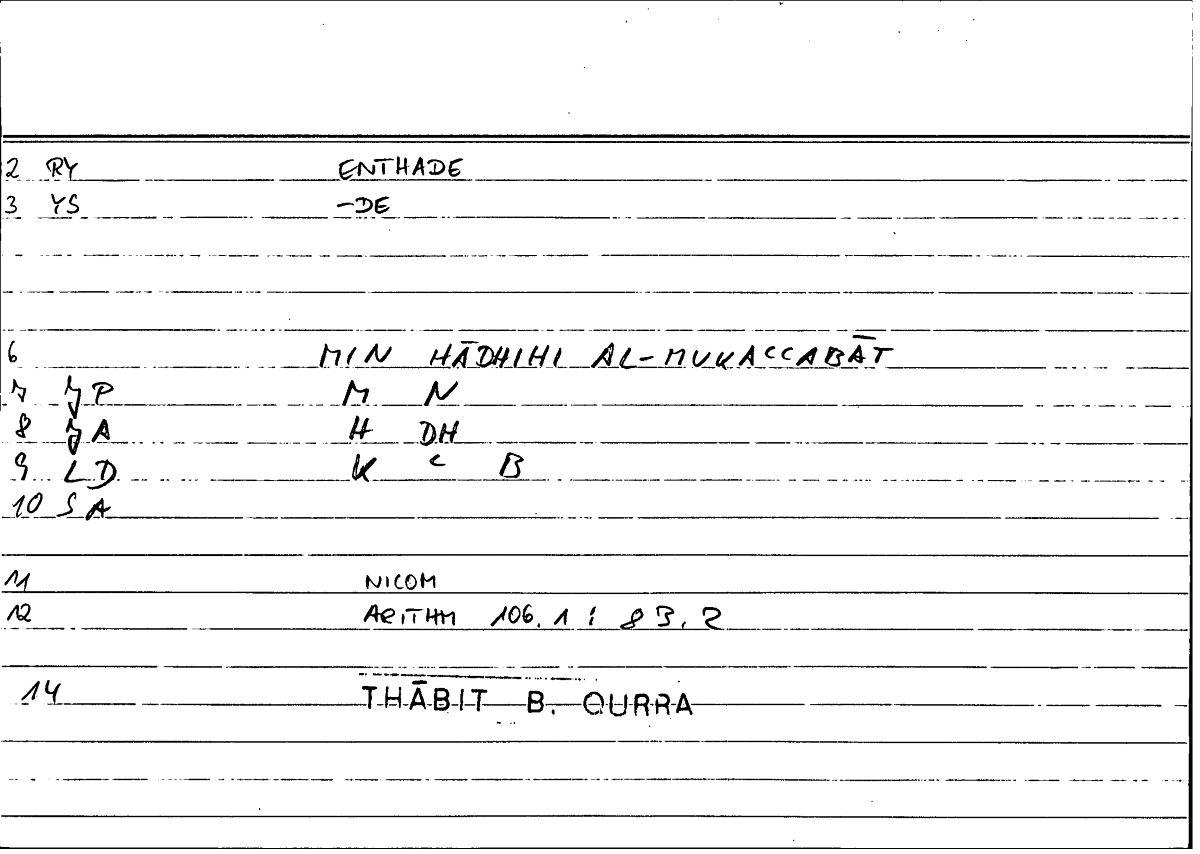 2 RY ENTHADE
3 YS -DE
6 MIN HĀDHIHI AL-MUKACCABĀT
7 JP M N
8 JA H DH
9 LD K C B
10 SA
11 NICOM
12 ARITHM 106.1 : 83.2
14 THĀBIT B. QURRA